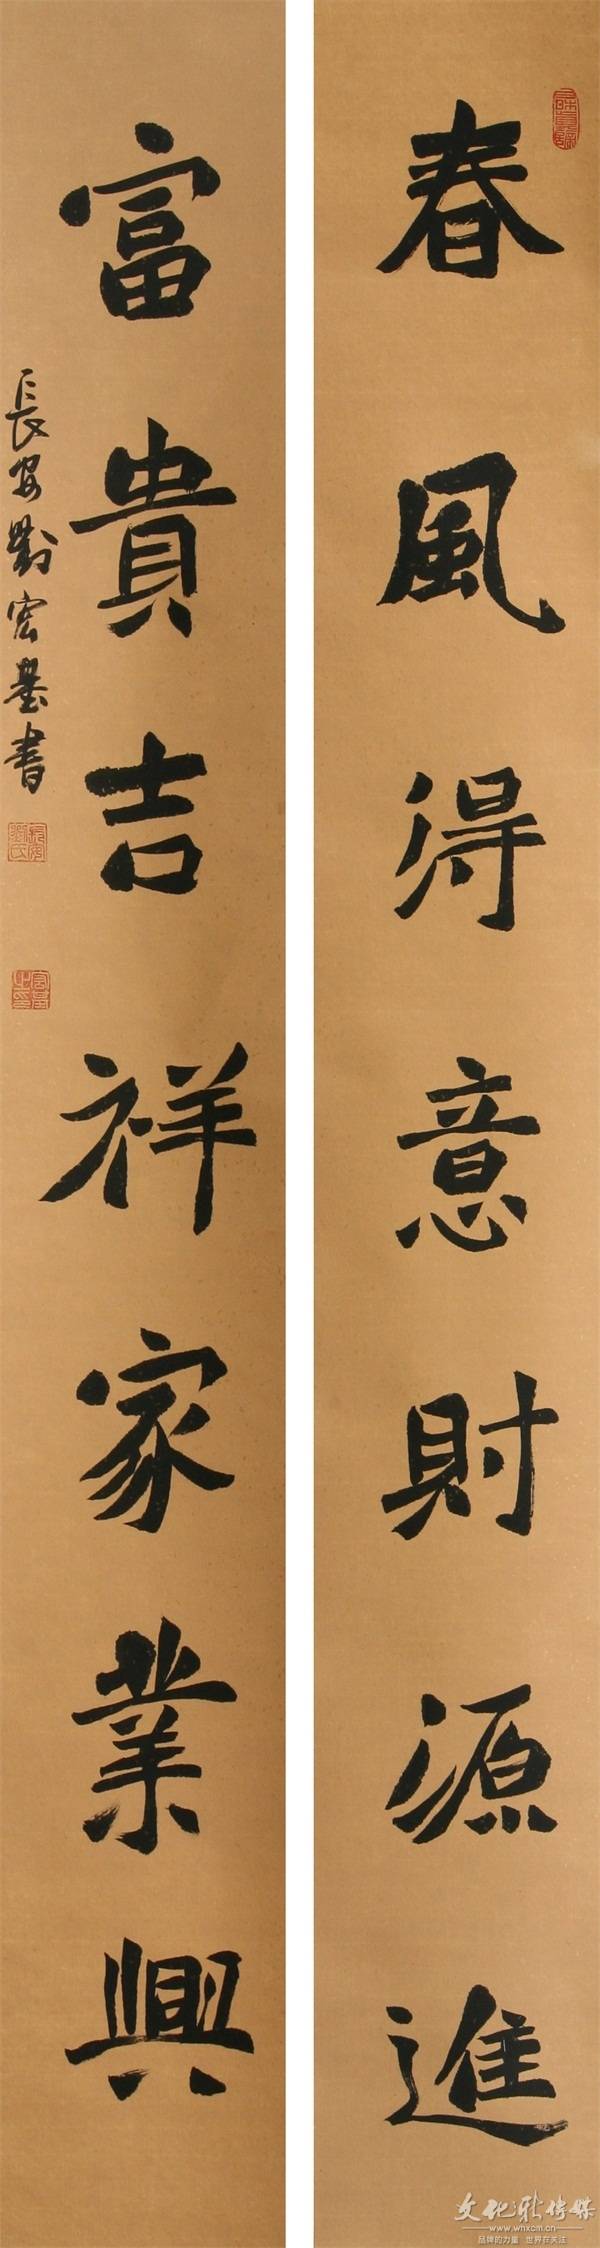 春風得意財源進
富貴吉祥家業興
長安劉宏墨書
文化新传媒
www.whxcm.cn
品牌的力量 世界在关注